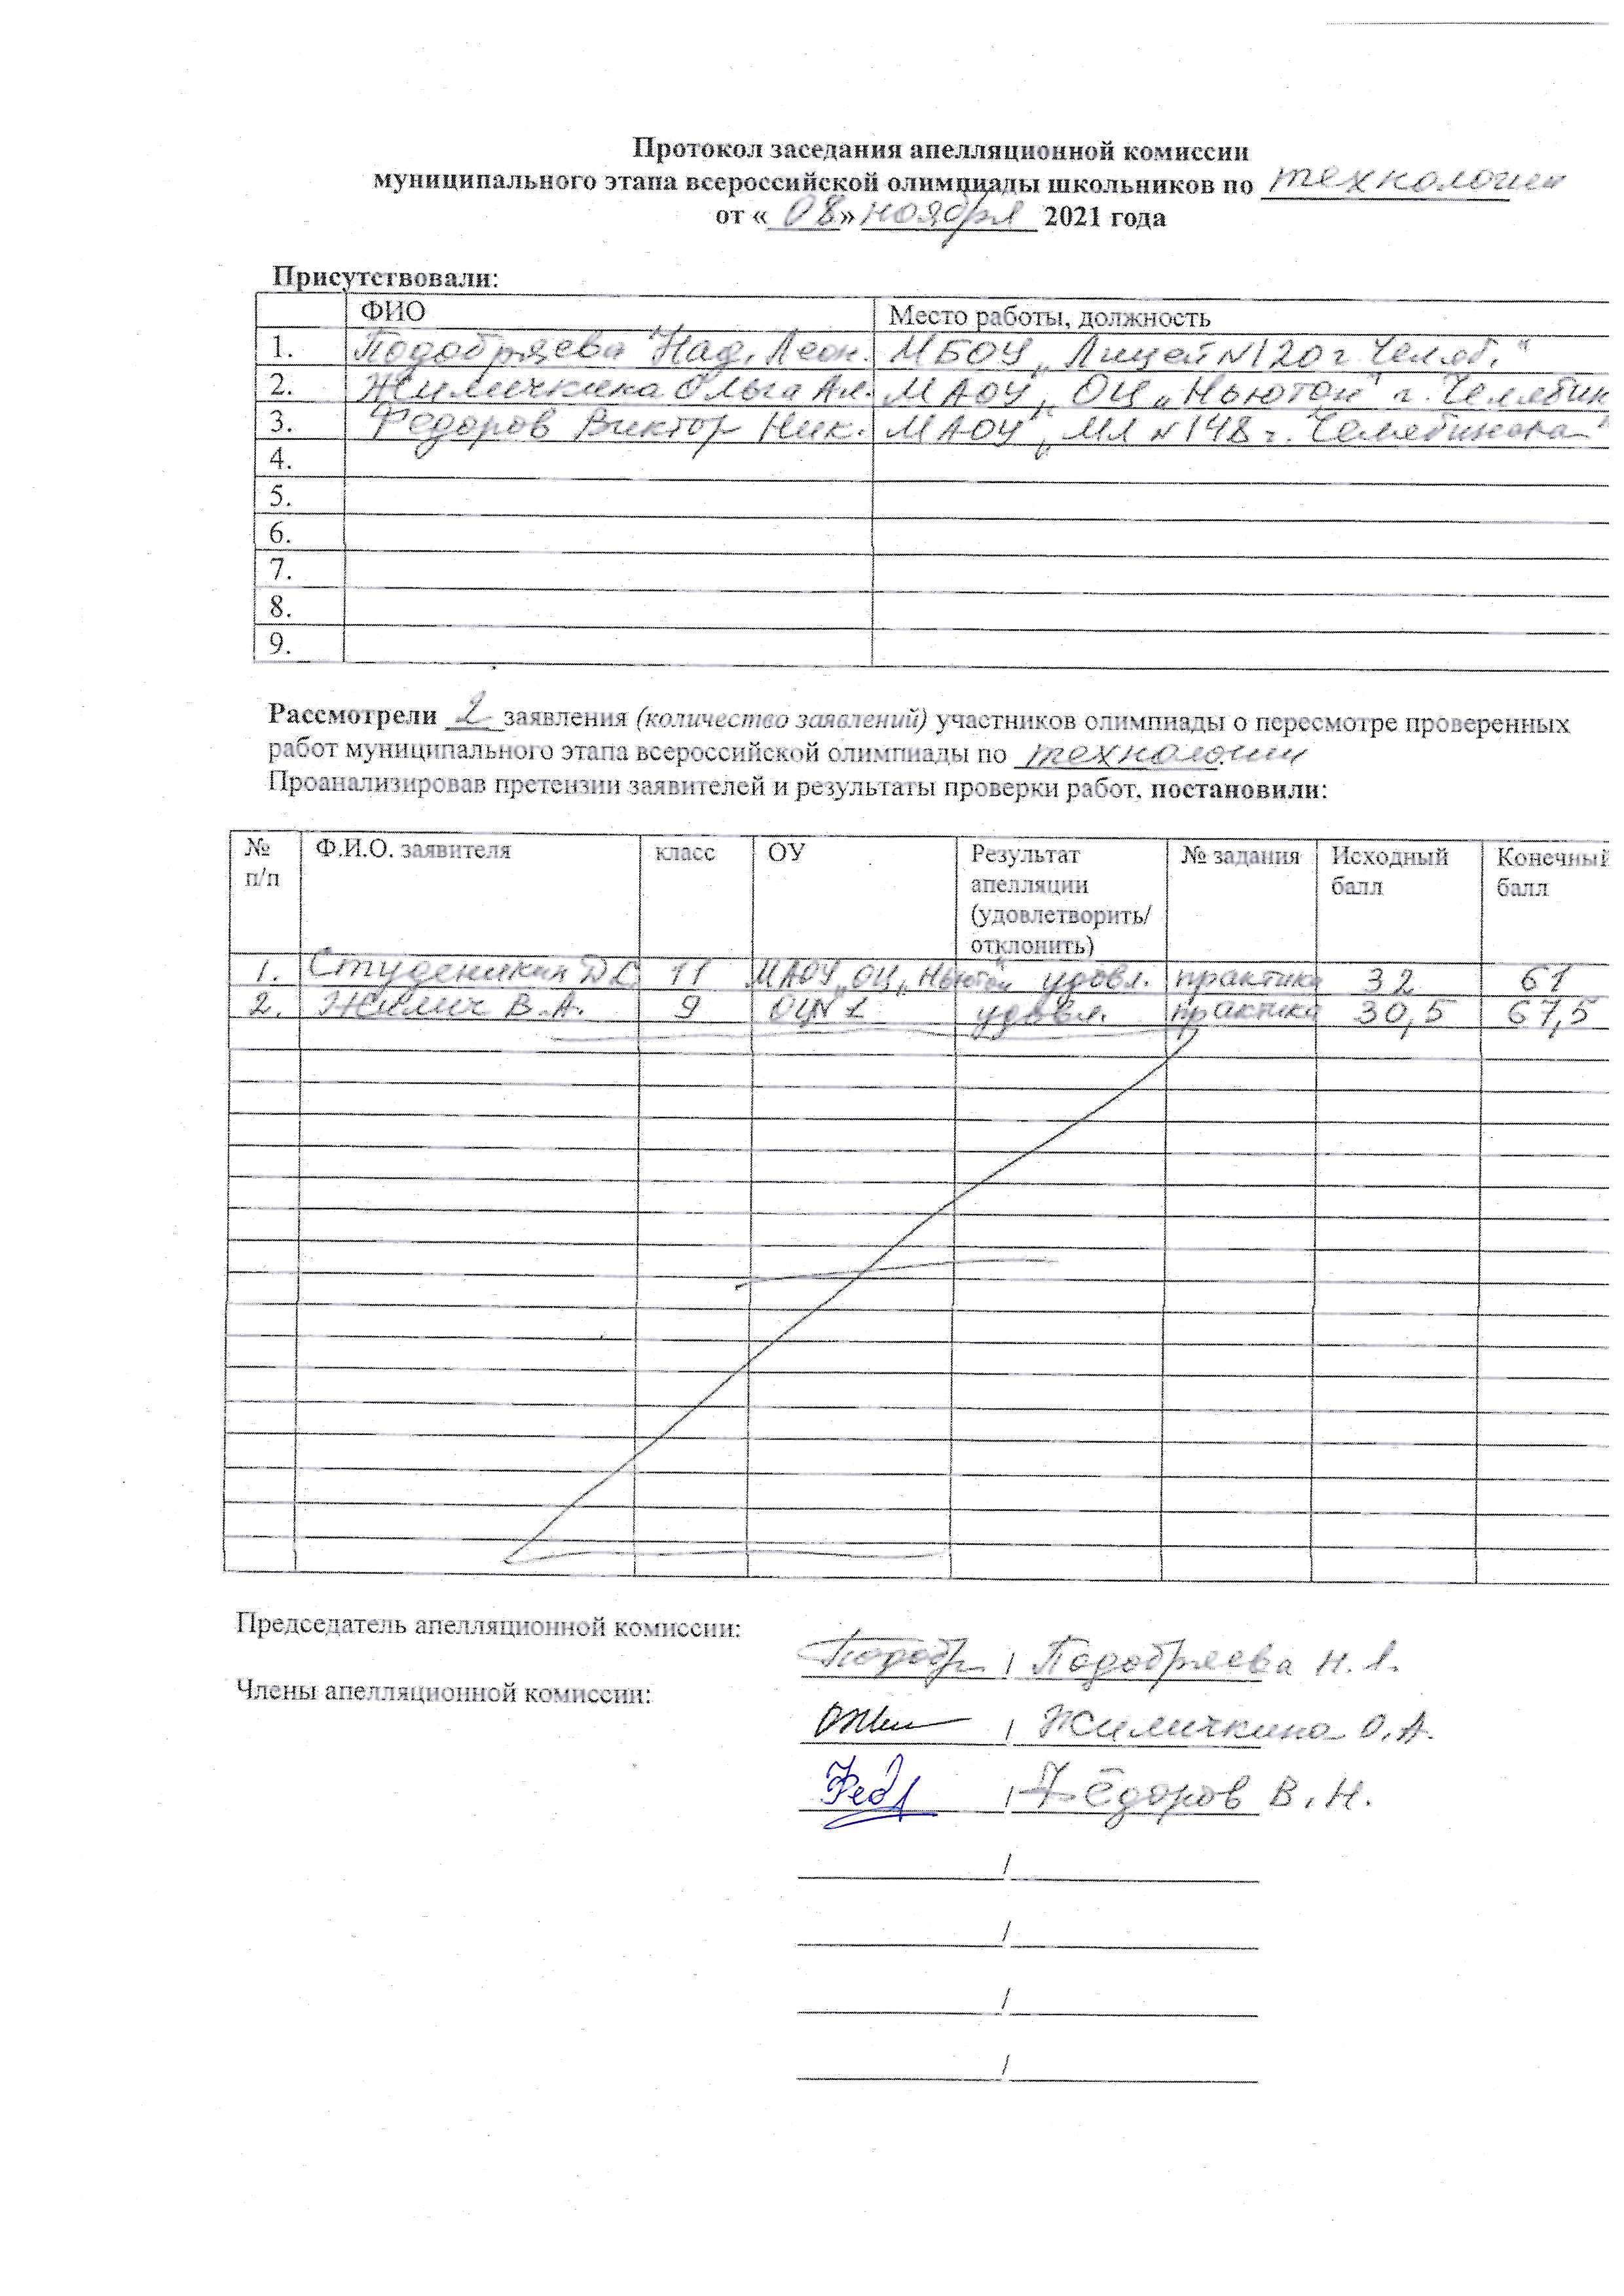 Протокол заседания апелляционной комиссии
муниципального этапа всероссийской олимпиады школьников по технологии
от «08» ноября 2021 года
Присутствовали:
ФИО Место работы, должность
1. Подобряева Над. Леон. МБОУ „Лицей N120 г Челяб."
2. Жиличкина Ольга Ал. МАОУ „ОЦ „Ньютон" г. Челябин
3. Федоров Виктор Ник. МАОУ „МЛ N148 г. Челябинска"
4.
5.
6.
7.
8.
9.
Рассмотрели 2 заявления (количество заявлений) участников олимпиады о пересмотре проверенных
работ муниципального этапа всероссийской олимпиады по технологии
Проанализировав претензии заявителей и результаты проверки работ, постановили:
№ п/п Ф.И.О. заявителя класс ОУ Результат апелляции (удовлетворить/ отклонить) № задания Исходный балл Конечный балл
1. Студеникин Д.С. 11 МАОУ „ОЦ „Ньютон" удовл. практика 32 61
2. Жилич В.А. 9 ОЦ N 1 удовл. практика 30,5 67,5
Председатель апелляционной комиссии:
Подобр / Подобряева Н.Л.
Члены апелляционной комиссии:
/ Жиличкина О.А.
Фед / Фёдоров В.Н.
/
/
/
/